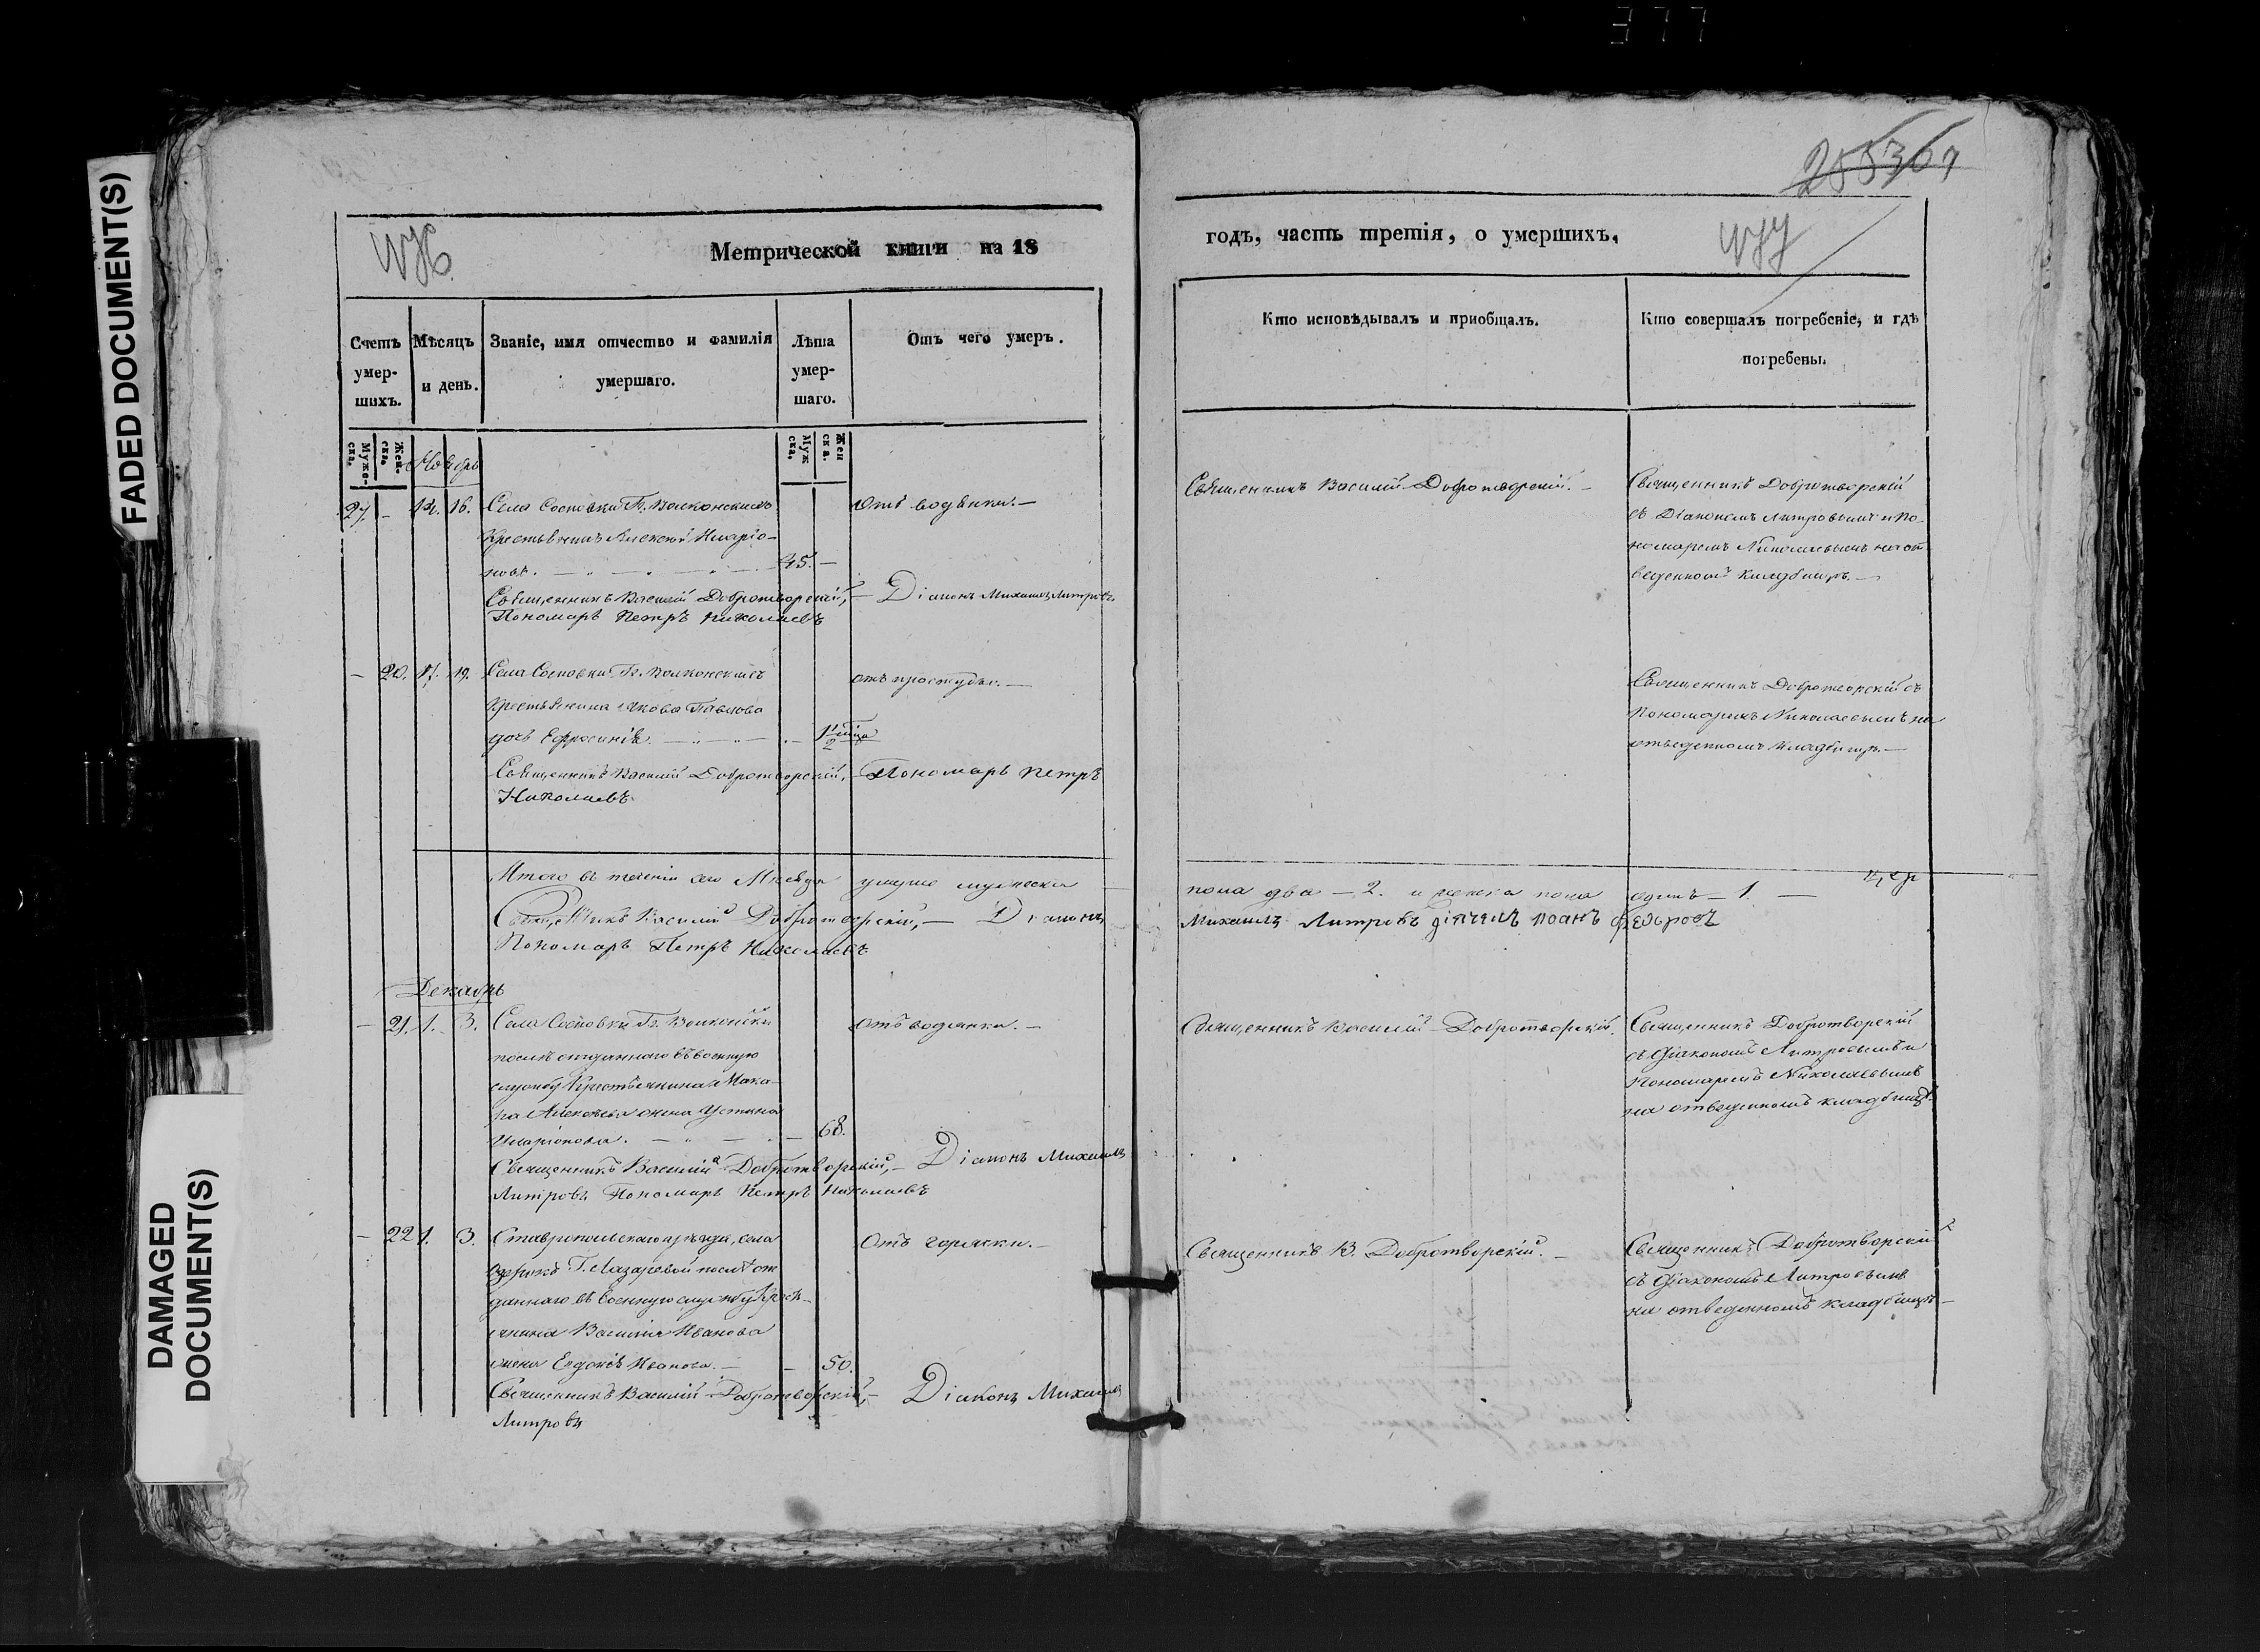 377
FADED DOCUMENT(S)
DAMAGED
DOCUMENT(S)
Метрической книги на 18
Счетъ умер-шихъ.
Мѣсяцъ и день.
Званіе, имя отчество и фамилія умершаго.
Лѣта умер-шаго.
Отъ чего умеръ.
Муже-ска.
Жен-ска.
Муж ска.
Жен ска.
Ноябрь
27. - 14. 16. Села Сосновки Гг. Волконскихъ Отъ водянки. —
Крестьянинъ Алексей Иларіо-
новъ. — 45. —
Священникъ Василій Добротворскій, — Діаконъ Михаилъ Литровъ
Пономарь Петръ Николаевъ
- 20. 17. 19. Села Сосновки Гг. Волконскихъ отъ простуды. —
Крестьянина Якова Павлова
дочь Ефросинія. — 1/2
Священникъ Василій Добротворскій, — Пономарь Петръ
Николаевъ
Итого въ теченіи сего Мѣсяца умерло мужеска
Священникъ Василій Добротворскій, — Діаконъ
Пономарь Петръ Николаевъ
Декабрь
- 21. 1. 3. Села Сосновки Гг. Волконски Отъ водянки. —
послѣ отданнаго въ военную
службу Крестьянина Мака-
ра Алексѣева жена Устинья
Иларіонова. — 68.
Священникъ Василій Добротворскій, — Діаконъ Михаилъ
Литровъ Пономарь Петръ Николаевъ
- 22 1. 3. Ставропольскаго уѣзда, села Отъ горячки. —
Г. Лазаревой послѣ от
даннаго въ военную службу Крест-
янина Василія Иванова
жена Евдокія Иванова. — 50.
Священникъ Василій Добротворскій, — Діаконъ Михаилъ
Литровъ
годъ, часть третія, о умершихъ,
Кто исповѣдывалъ и пріобщалъ.
Кто совершалъ погребеніе, и гдѣ
погребены.
Священникъ Василій Добротворскій. — Священникъ Добротворскій
съ Діакономъ Литровымъ и По-
номаремъ Николаевымъ на от
веденномъ кладбищѣ. —
Священникъ Добротворскій съ
Пономаремъ Николаевымъ на
отведенномъ кладбищѣ. —
пола два — 2. и женска пола одинъ — 1. —
Михаилъ Литровъ дьячекъ Иоанъ Федоровъ
Священникъ Василій Добротворскій. Священникъ Добротворскій
съ Діакономъ Литровымъ и
Пономаремъ Николаевымъ
на отведенномъ кладбищѣ.
Священникъ В. Добротворскій. — Священникъ Добротворскій
съ Діакономъ Литровымъ
на отведенномъ кладбищѣ —